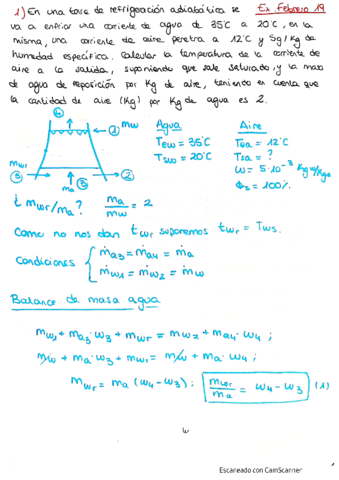 1) En una torre de refrigeración adiabática se Ex Febrero 19
va a enfriar una corriente de agua de 35°C a 20°C, en la
misma, una corriente de aire penetra a 12°C y 5g/kg de
humedad específica. Calcular la temperatura de la corriente de
aire a la salida, suponiendo que sale saturado, y la masa
de agua de reposición por Kg de aire, teniendo en cuenta que
la cantidad de aire (Kg) por Kg de agua es 2.
④
① mw
Agua
Aire
Tew = 35°C
Tea = 12°C
Tsw = 20°C
Tsa = ?
mwr
③
ma
③
②
ω = 5·10⁻³ Kgw/Kga
Φs = 100%
¿ mwr/ma? ma/mw = 2
Como no nos dan twr suponemos twr = Tws.
Condiciones { ṁa3 = ṁa4 = ṁa
ṁw1 = ṁw2 = ṁw
Balance de masa agua
mw1 + ma3·ω3 + mwr = mw2 + ma4·ω4 ;
mw + ma·ω3 + mwr = mw + ma·ω4 ;
mwr = ma (ω4 - ω3) ; mwr/ma = ω4 - ω3 (1)
Escaneado con CamScanner